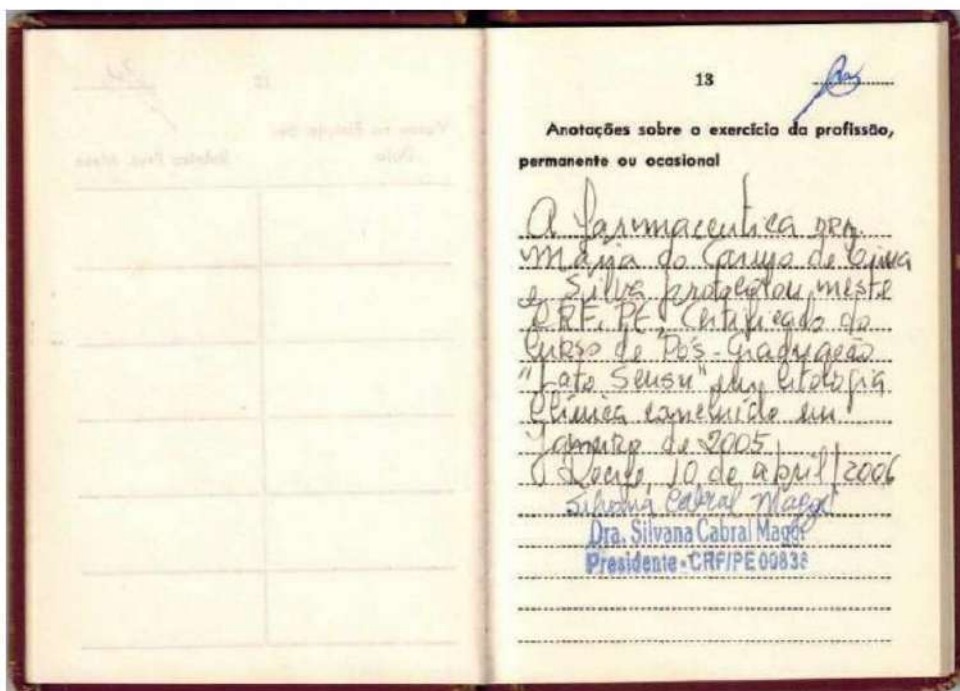 13
Anotações sobre o exercício da profissão,
permanente ou ocasional
A farmaceutica
Maria do Carmo de Lima
e Silva protocolou neste
CRF. PE. Certificado do
Curso de Pós-Graduação
"Lato Sensu" em Citologia
Clínica concluído em
Janeiro de 2005
Recife, 10 de abril/2006
Silvana Cabral Maggi
Dra. Silvana Cabral Maggi
Presidente - CRF/PE 00838